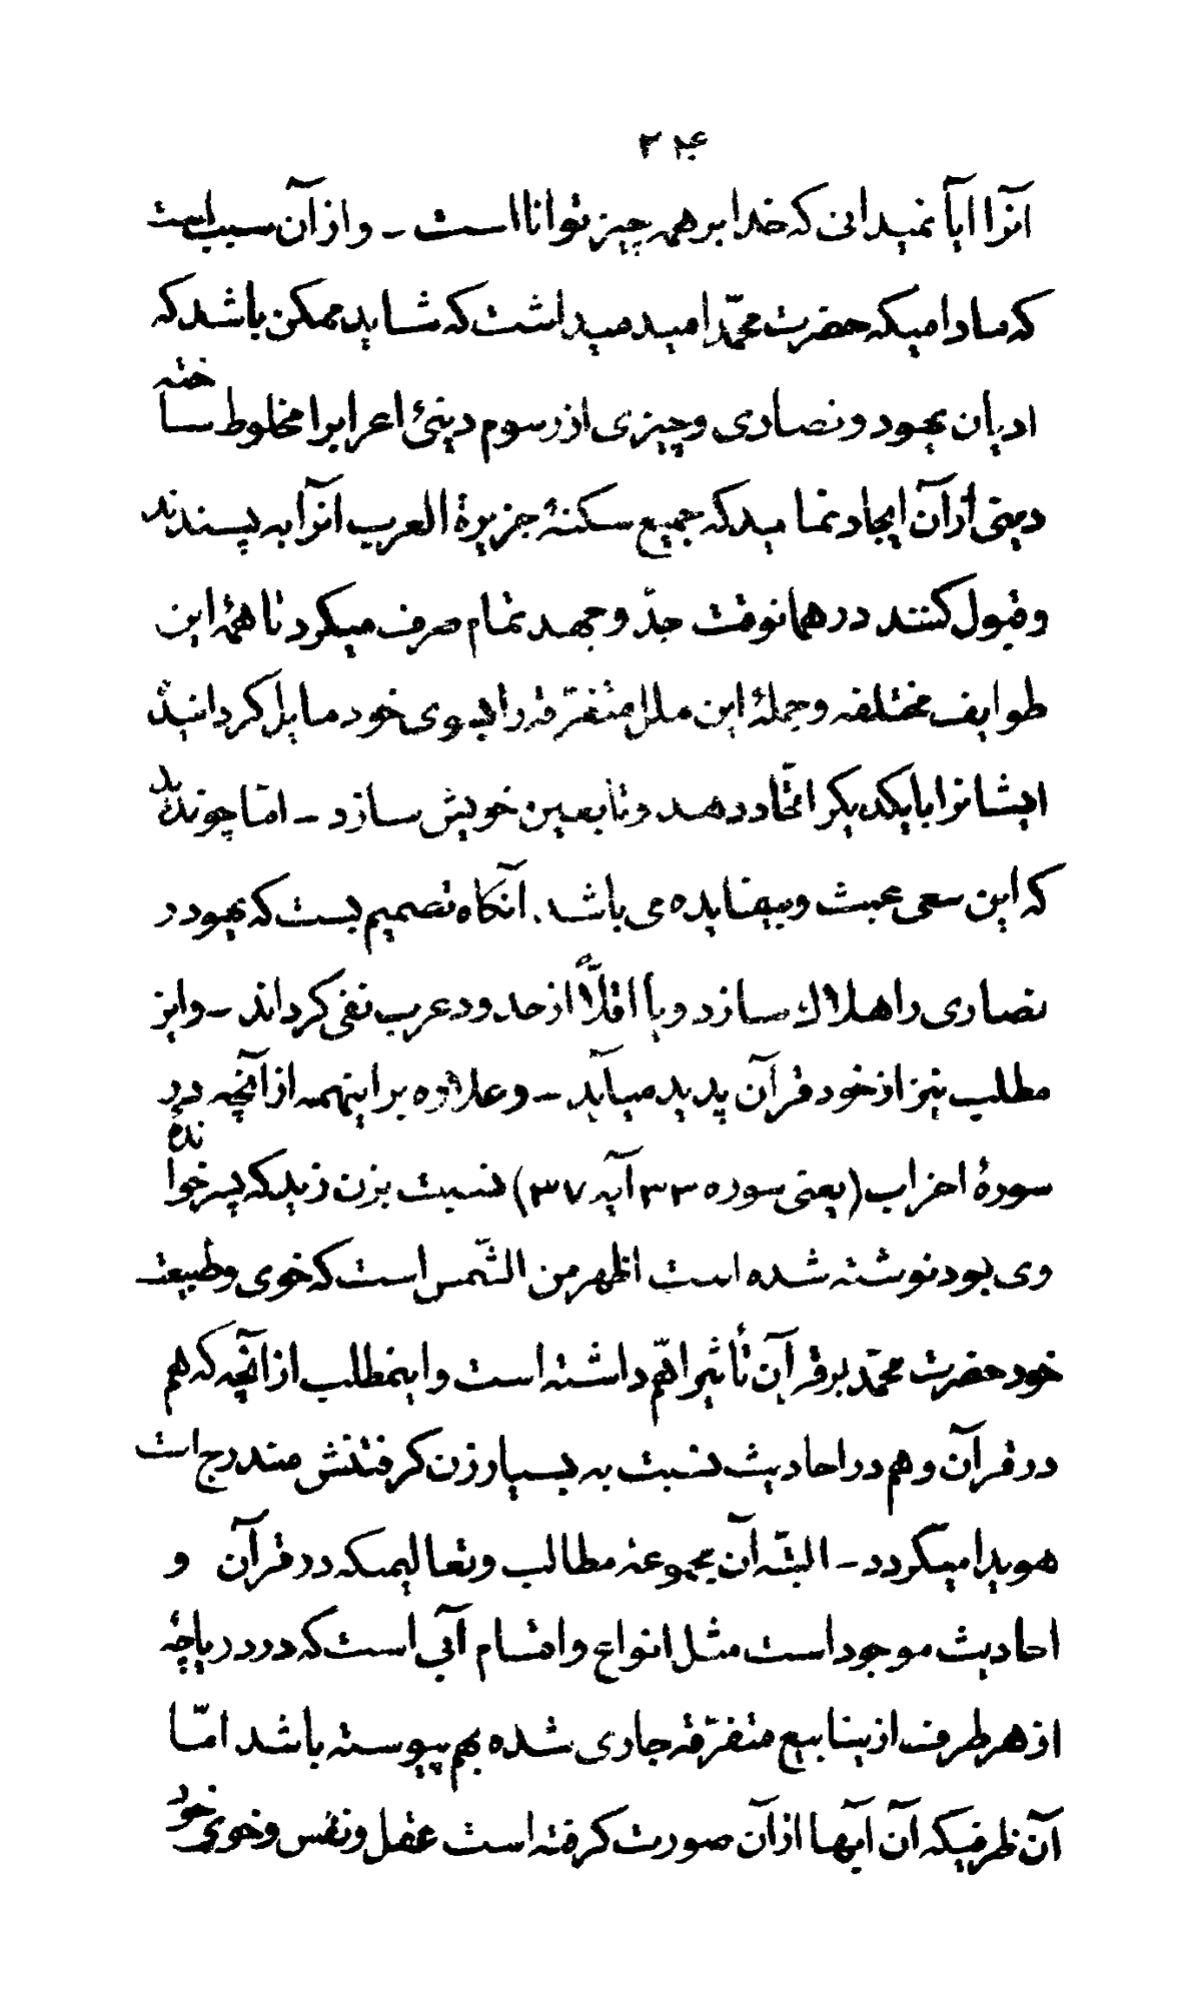 ۲۴
آنرا آیا نمیدانی که خدا بر همه چیز توانا است – و از آن سبب است
که مادامیکه حضرت محمّد امید میداشت که شاید ممکن باشد که
ادیان یهود و نصاری و چیزی از رسوم دینیٔ اعرابرا مخلوط ساخته
دینی از آن ایجاد نماید که جمیع سکنهٔ جزیرة العرب آنرا به پسندند
و قبول کنند در همانوقت جدّ و جهد تمام صرف میکرد تا همهٔ این
طوایف مختلفه و جملهٔ این ملل متفرّقه را بسوی خود مایل کردانیده
ایشانرا بایکدیکر اتّحاد دهد و تابعین خویش سازد – امّا چون دید
که این سعی عبث و بیفایده می باشد. آنکاه تصمیم بست که یهود و
نصاری را هلاك سازد و یا اقلّاً از حدود عرب نفی کرداند – و این
مطلب نیز از خود قرآن پدید میآید – و علاوه بر اینهمه از آنچه در
سورهٔ احزاب (یعنی سوره ۳۳ آیه ۳۷) نسبت بزن زید که پسر خواندهٔ
وی بود نوشته شده است اظهر من الشّمس است که خوی و طبیعت
خود حضرت محمّد بر قرآن تأثیر اهمّ داشته است و اینمطلب از آنچه که هم
در قرآن و هم در احادیث نسبت به بسیار زن کرفتنش مندرج است
هویدا میکردد – البتّه آن مجموعهٔ مطالب و تعالیمیکه در قرآن و
احادیث موجود است مثل انواع و اقسام آبی است که در دریاچهٔ
از هر طرف از ینابیع متفرّقه جاری شده بهم پیوسته باشد امّا
آن ظرفیکه آن آبها از آن صورت کرفته است عقل و نفس و خوی خود